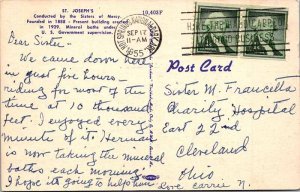 ST. JOSEPH'S
Conducted by the Sisters of Mercy.
Founded in 1888 - Present building erected
in 1929. Mineral baths under
U. S. Government supervision.
19,403F
HOT SPRINGS NATIONAL PARK, ARK.
SEP 17
11-AM
1955
Dear Sister -
We came down here
in just five hours -
riding for most of the
time at 10 thousand
feet. Enjoyed every
minute of it. Herman
is now taking the mineral
baths each morning.
I hope it's going to help him
love carrie N.
Post Card
Sister M. Francetta
Charity Hospital
East 22nd
Cleveland
Ohio